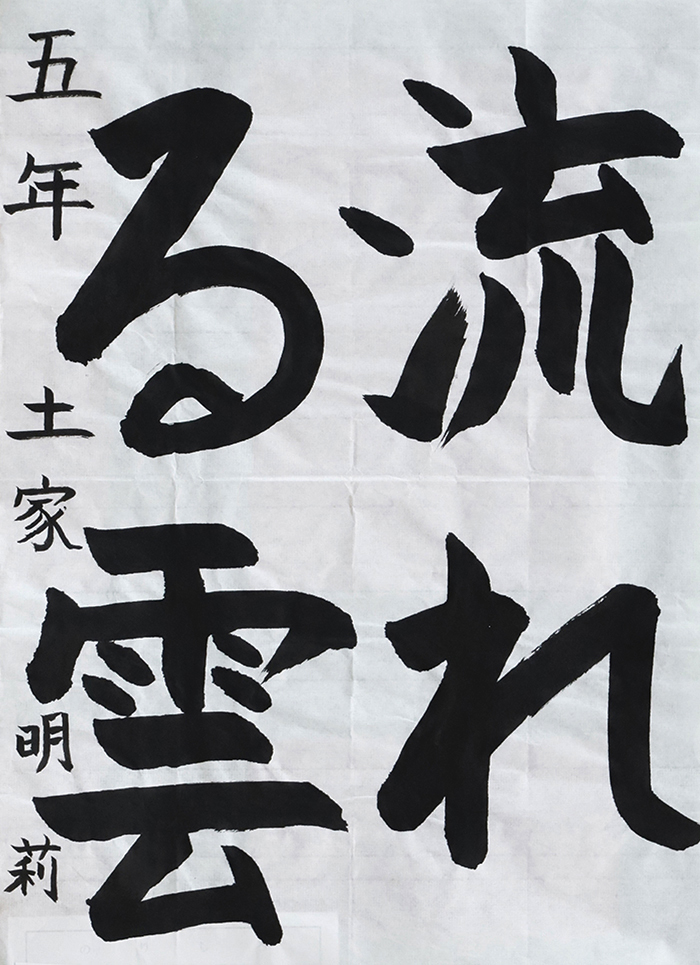 流れ
る雲
五年 土家明莉